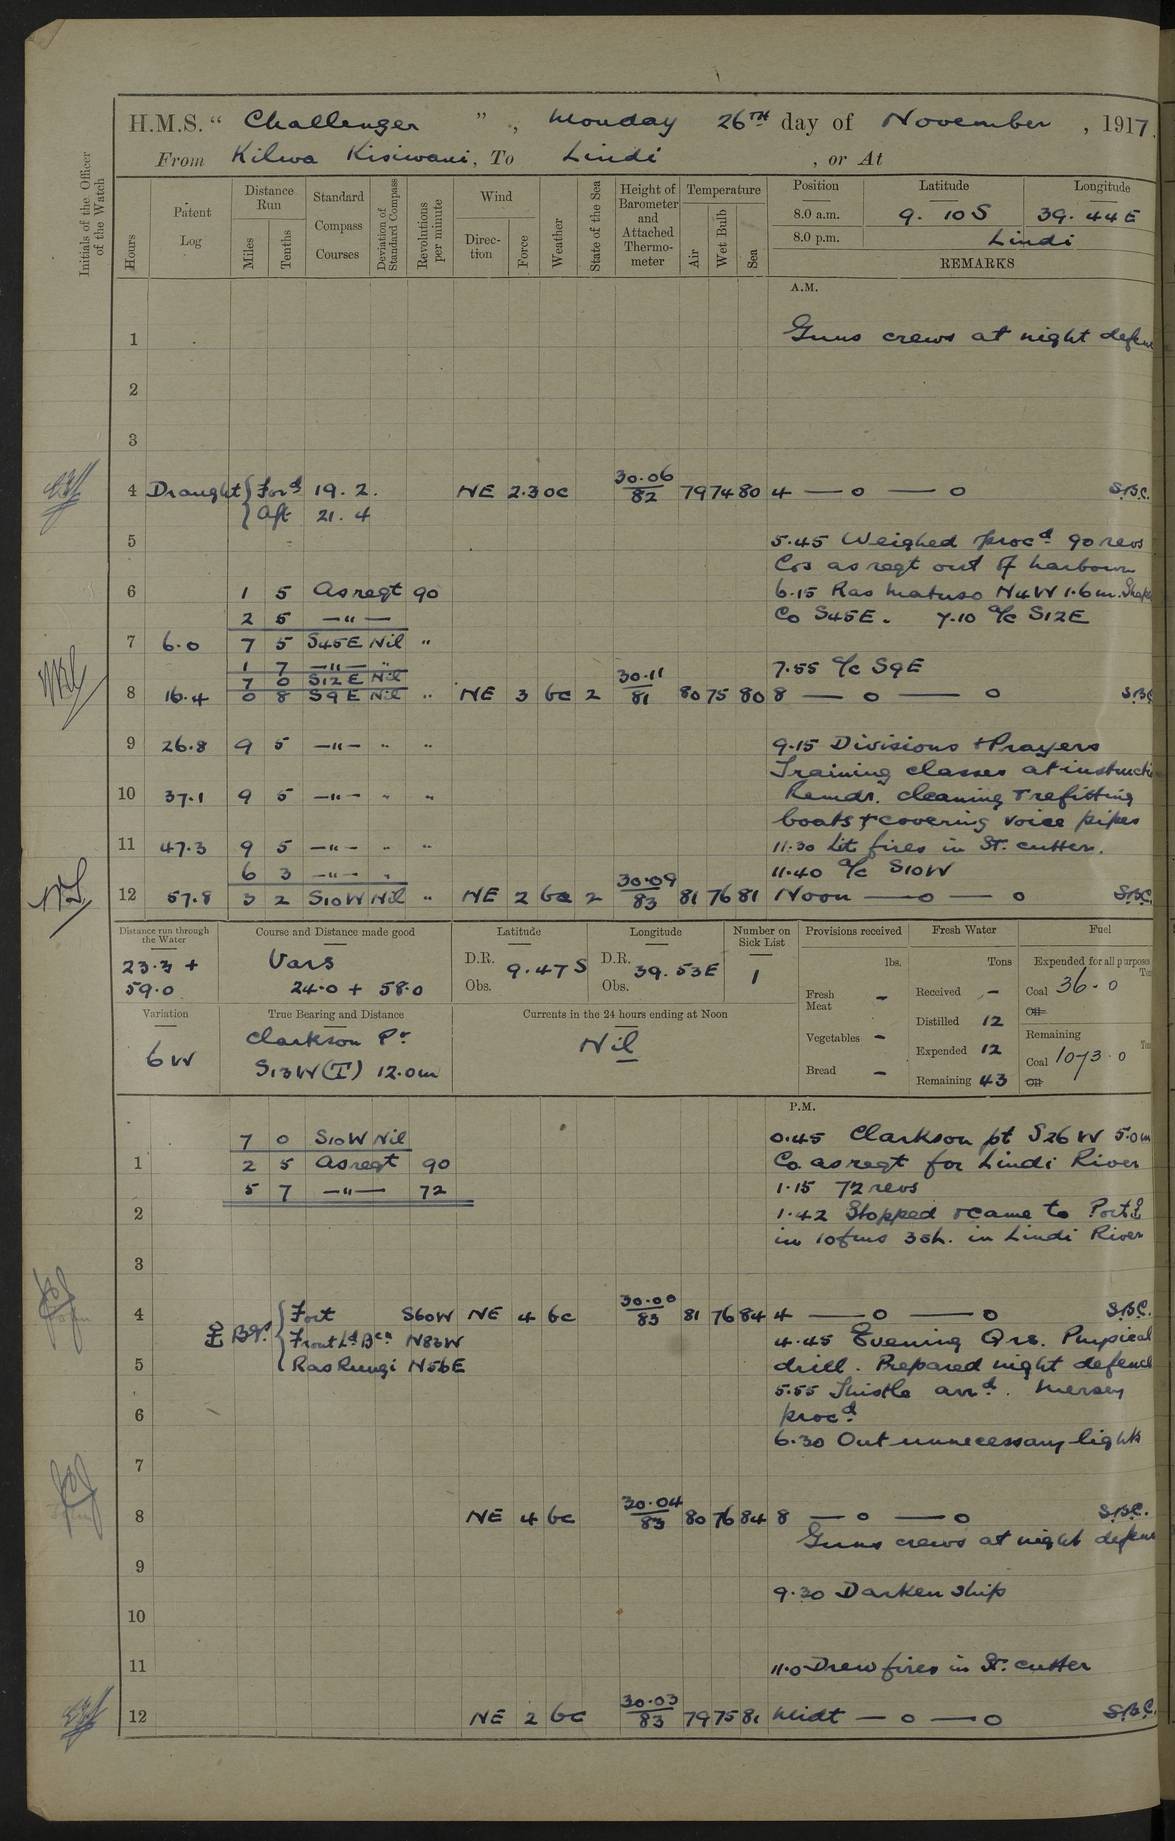 H.M.S. “ Challenger ” , Monday 26TH day of November , 1917.
From Kilwa Kisiwani, To Lindi , or At
Initials of the Officer of the Watch
Hours
Patent Log
Distance Run
Miles
Tenths
Standard Compass Courses
Deviation of Standard Compass
Revolutions per minute
Wind
Direction
Force
Weather
State of the Sea
Height of Barometer and Attached Thermometer
Temperature
Air
Wet Bulb
Sea
Position Latitude Longitude
8.0 a.m. 9. 10 S 39. 44 E
8.0 p.m. Lindi
REMARKS
A.M.
1 Guns crews at night defen
2
3
4 Draught { Ford 19. 2. NE 2.3 oc 30.06/82 79 74 80 4 — o — o S.B.C.
{ Aft 21. 4
5 5.45 Weighed procd 90 revs
Cos as reqt out of harbour
6 1 5 As reqt 90 6.15 Ras Matuso N4W 1.6m. Shape
2 5 —"— Co S45E. 7.10 a/c S12E
7 6.0 7 5 S45E Nil "
1 7 —"— " 7.55 a/c S9E
7 0 S12E Nil
8 16.4 0 8 S9E Nil " NE 3 bc 2 30.11/81 80 75 80 8 — o — o S.B.C
9 26.8 9 5 —"— " " 9.15 Divisions + Prayers
Training classes at instructi
10 37.1 9 5 —"— " " Remdr. cleaning + refitting
boats + covering voice pipes
11 47.3 9 5 —"— " " 11.30 Lit fires in St. cutter.
6 3 —"— " 11.40 a/c S10W
12 57.8 3 2 S10W Nil " NE 2 bc 2 30.09/83 81 76 81 Noon — o — o S.B.C.
Distance run through the Water
23.3 +
59.0
Course and Distance made good
Vars
24.0 + 58.0
Latitude
D.R. 9.47 S
Obs.
Longitude
D.R. 39.53E
Obs.
Number on Sick List
1
Provisions received
lbs.
Fresh Meat -
Vegetables -
Bread -
Fresh Water
Tons
Received -
Distilled 12
Expended 12
Remaining 43
Fuel
Expended for all purpose
Ton
Coal 36.0
Oil
Remaining
Ton
Coal 1073.0
Oil
Variation
6 W
True Bearing and Distance
Clarkson Pt
S13W (T) 12.0m
Currents in the 24 hours ending at Noon
Nil
P.M.
7 0 S10W Nil 0.45 Clarkson pt S26W 5.0m
1 2 5 As reqt 90 Co as reqt for Lindi River
5 7 —"— 72 1.15 72 revs
2 1.42 Stopped + came to Port ⚓
in 10 fms 3 sh. in Lindi River
3
4 ⚓ Bgs. { Fort S60W NE 4 bc 30.00/83 81 76 84 4 — o — o S.B.C.
{ Front Ld Bcn N83W 4.45 Evening Qrs. Physical
5 { Ras Rungi N56E drill. Prepared night defence
5.55 Thistle arrd. Mersey
6 procd
6.30 Out unnecessary lights
7
8 NE 4 bc 30.04/83 80 76 84 8 — o — o S.B.C.
Guns crews at night defen
9
9.30 Darken ship
10
11 11.0 Drew fires in St. cutter
12 NE 2 bc 30.03/83 79 75 81 Midt — o — o S.B.C.